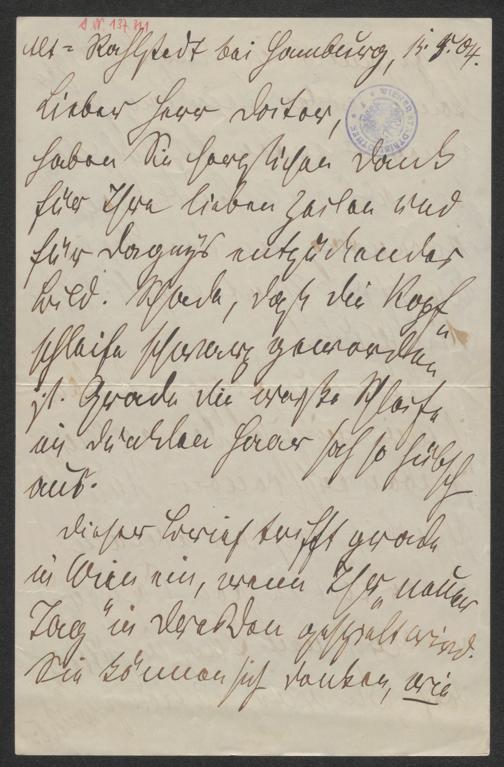 J.N. 137.871
Alt-Rahlstedt bei Hamburg, 15. 5. 04.
Lieber Herr Doctor,
haben Sie herzlichen Dank
für Ihre lieben Zeilen und
für Dagnys entzückendes
Bild. Schade, daß die Kopf
schleife schwarz geworden
ist. Grade die weiße Schleife
im dunklen Haar sah so hübsch
aus.
Dieser Brief trifft grade
in Wien ein, wenn Ihr „neuer
Tag" in Dresden gespielt wird.
Sie können sich denken, wie